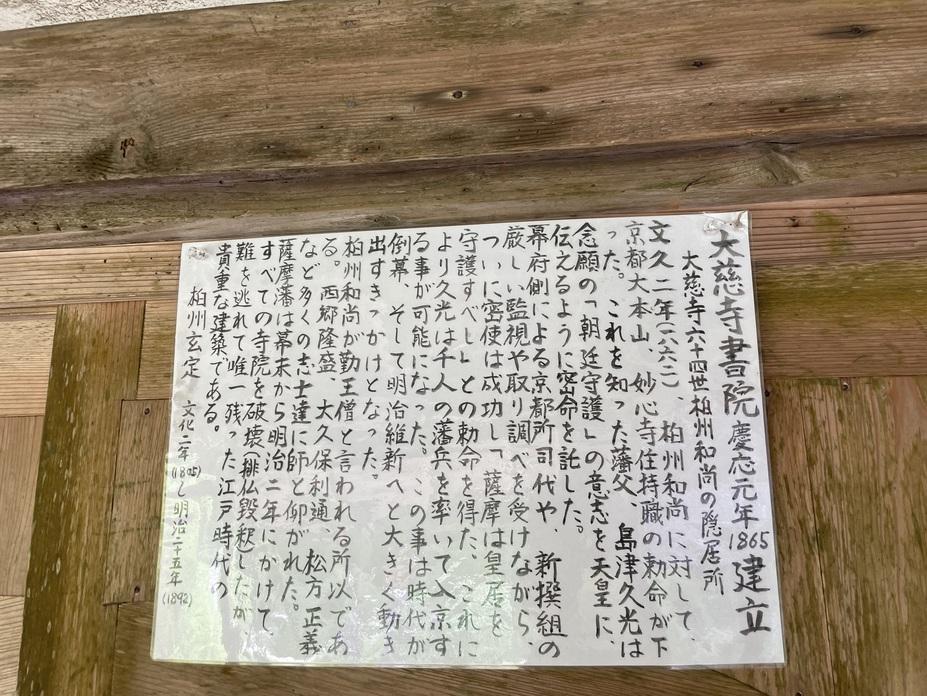 大慈寺書院 慶応元年1865建立
大慈寺六十四世柏州和尚の隠居所
文久二年(一八六二)、柏州和尚に対して、
京都大本山、妙心寺住持職の勅命が下
った。これを知った藩父、島津久光は
念願の「朝廷守護」の意志を天皇に、
伝えるように密命を託した。
幕府側による京都所司代や、新撰組の
厳しい監視や取り調べを受けながら、
ついに密使は成功し「薩摩は皇居を
守護すべし」との勅命を得た、これに
より久光は千人の藩兵を率いて入京す
る事が可能になった。この事は時代が
倒幕、そして明治維新へと大きく動き
出すきっかけとなった。
柏州和尚が勤王僧と言われる所以であ
る。西郷隆盛、大久保利通、松方正義
など多くの志士達に師と仰がれた。
薩摩藩は幕末から明治二年にかけて、
すべての寺院を破壊(排仏毀釈)したが、
難を逃れて唯一残った江戸時代の
貴重な建築である。
柏州玄定 文化二年(1805)〜明治二十五年(1892)